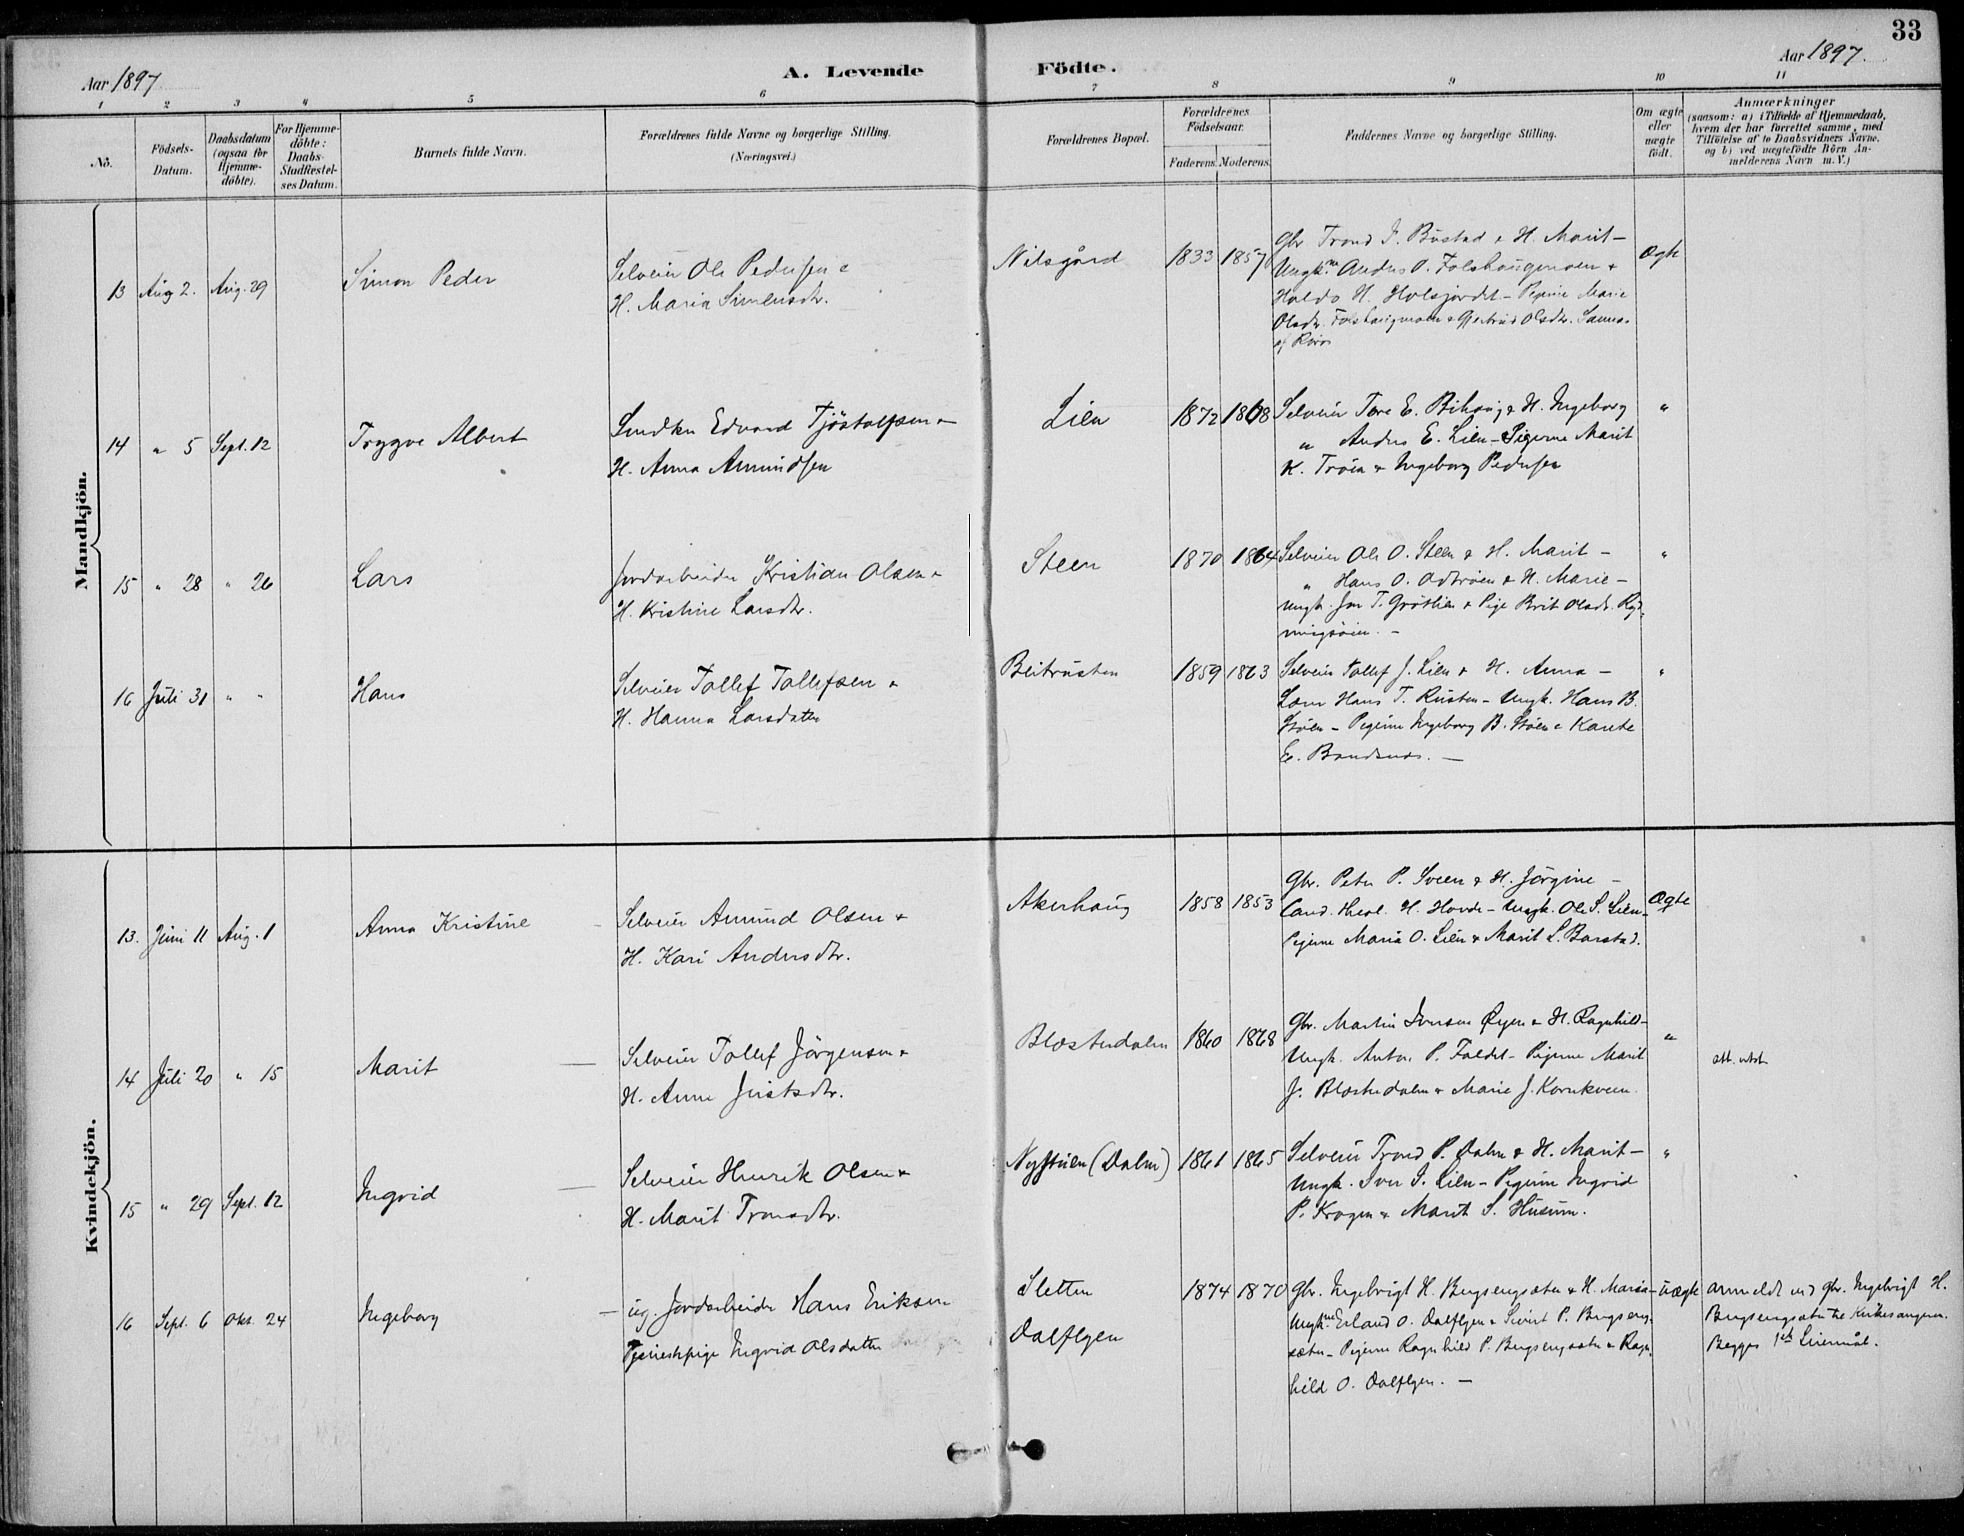 33
Aar 1897
A. Levende Födte.
Aar 1897.
1 2 3 4 5 6 7 8 9 10 11
No.
Födsels-Datum.
Daabsdatum (ogsaa for Hjemme-döbte).
For Hjemme-döbte: Daabs-Stadfæstel-ses Datum.
Barnets fulde Navn.
Forældrenes fulde Navne og borgerlige Stilling. (Næringsvei.)
Forældrenes Bopæl.
Forældrenes Födselsaar.
Faderens. Moderens.
Faddernes Navne og borgerlige Stilling.
Om ægte eller uægte födt.
Anmærkninger
(saasom: a) i Tilfælde af Hjemmedaab, hvem der har forrettet samme, med Tilföielse af to Daabsvidners Navne, og b) ved uægtefödte Börn An-melderens Navn m.V.)
Mandkjön.
13 Aug 2. Aug. 29 Simon Peder
Selveier Ole Pedersen &
H. Maria Simensdtr.
Nilsgård 1833 1857
Gbr Trond I. Bustad & H. Marit -
Ungk. Anders O. Folshaugmoen &
Haldo H. Holsjordet - Marie
Olsdtr. Folshaugmoen & Gjertrud Olsdtr.
af Røros
Ægte
14 " 5 Sept. 12 Trygve Albert
Edvard Tjöstolfsen &
H. Anna Amundsen
Lien 1872 1868
Selveier Tore E. Bihaug & H. Ingeborg
" Anders E. Lien - Pigerne Marit
K. Trøen & Ingeborg Pedersen
"
15 " 28 " 26 Lars
Jordarbeider Kristian Olsen &
H. Kristine Larsdtr.
Steen 1870 1864
Selveier Ole O. Steen & H. Marit -
" Hans O. & H. Marie -
Ungk. Jon T. Grøtlien & Pige Brit Olsdtr.
"
16 Juli 31 " " Hans
Selveier Tollef Tollefsen &
H. Hanna Larsdatter
Beitrusten 1859 1863
Selveier Tollef J. Lien & H. Anna -
Hans T. Rusten - Ungk. Hans B.
Støen - Pigerne Ingeborg B. Støen & Karete
E. Brandsnes. -
"
Kvindekjön.
13. Juni 11 Aug. 1 Anna Kristine
Selveier Amund Olsen &
H. Kari Andersdtr.
Akerhaug 1858 1853
Gbr. Peter P. Sveen & H. Jörgine -
Cand. theol. H. Hovde - Ungk. Ole S. Lien -
Pigerne Maria O. Lien & Marit L. Barstad.
Ægte
14 Juli 20 " 15 Marit
Selveier Tollef Jörgensen &
H. Anne Justsdtr.
Blæsterdalen 1860 1868
Gbr. Martin Iversen Øyen & H. Ragnhild -
Ungk. Anton P. Faldet - Pigerne Marit
J. Blæsterdalen & Marie J. Kornkveen.
"
att. utst.
15 " 29 Sept. 12 Ingrid
Selveier Henrik Olsen &
H. Marit Tronsdtr.
Nystuen (Dalen) 1861 1865
Selveier Trond P. Dalen & H. Marit -
Ungk. Iver I. Lien - Pigerne Ingrid
P. Krogen & Marit S. Husum.
"
16 Sept. 6 Okt. 24 Ingeborg
ug. Jordarbeider Hans Eriksen
Tjenestepige Ingrid Olsdatter
Sletten
Dalflyen
1874 1870
Gbr. Ingebrigt H. Bergsengsæter & H. Maria -
Ungk. Erland O. Dalflyen & Sivert P. Bergseng-
sæter - Pigerne Ragnhild P. Bergsengsæter & Ragn-
hild O. Dalflyen. -
uægte
anmeldt ved Gbr. Ingebrigt H.
Bergsengsæter til Kirkesangeren.
Begges 1ste Leiermål.